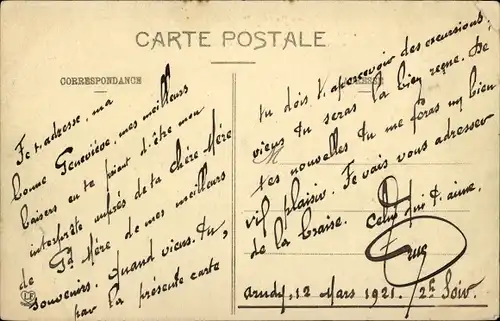 CARTE POSTALE
CORRESPONDANCE
Je t'adresse, ma
bonne Geneviève, mes meilleurs
baisers en te priant d'être mon
interprète auprès de ta chère Mère
de Gd Mère de mes meilleurs
souvenirs. Quand viens-tu,
par la présente carte
tu dois t'apercevoir des excursions.
viens tu seras la bien reçue. De
tes nouvelles tu me feras un bien
vif plaisir. Je vais vous adresser
de la braise. Celui qui t'aime.
Arudy, 12 Mars 1921. Soir.